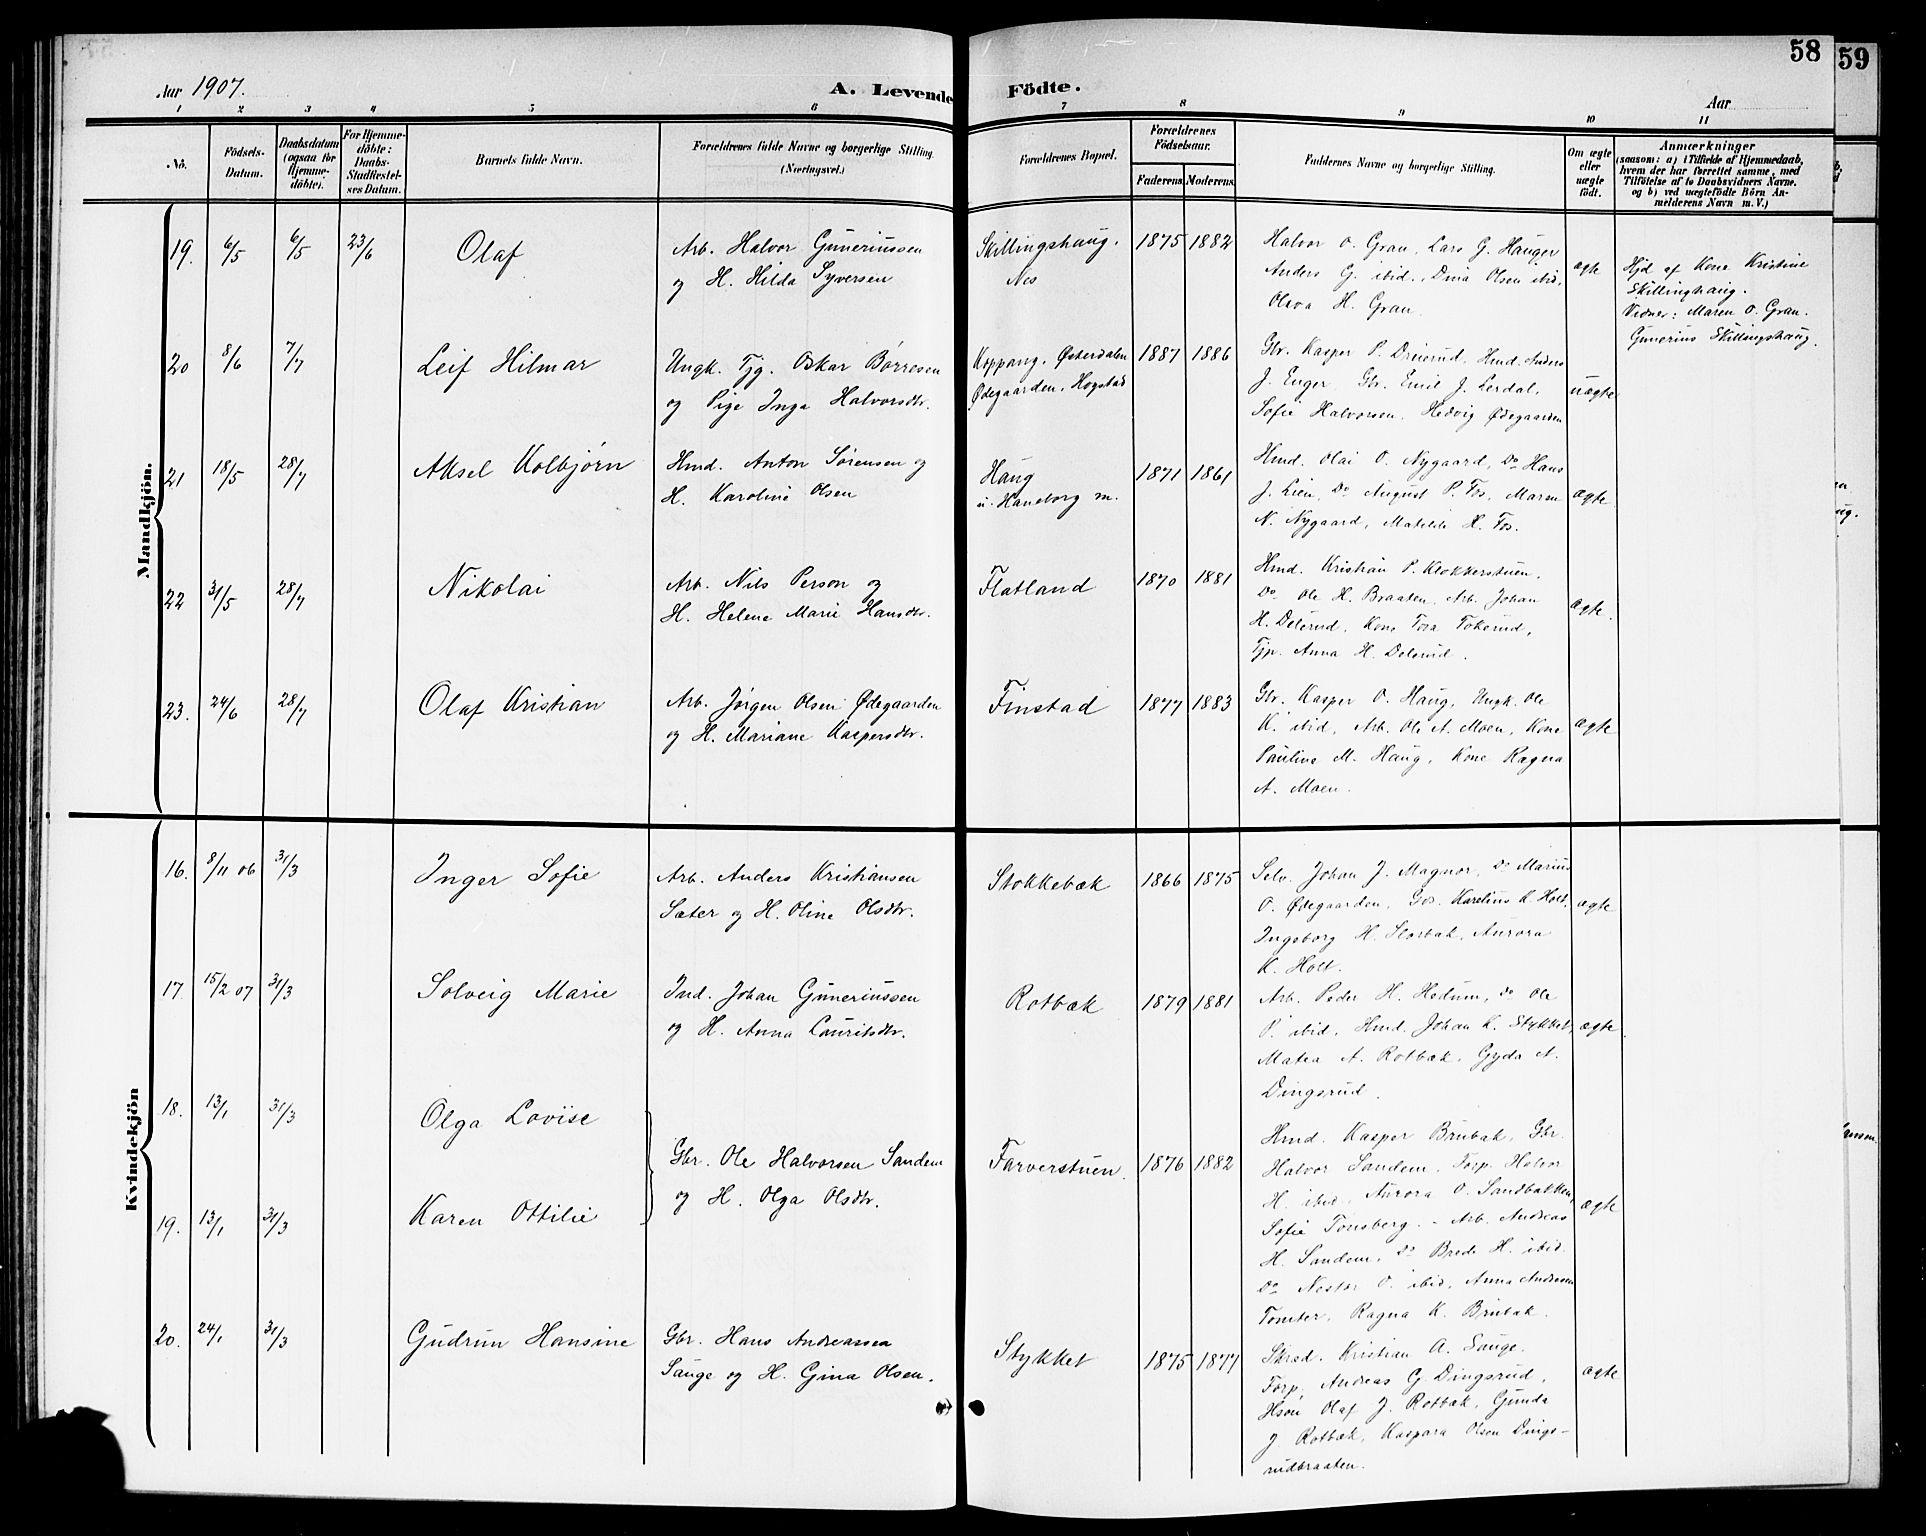 58
59
Aar 1907.
A. Levende Födte.
Aar
1 2 3 4 5 6 7 8 9 10 11
No.
Födsels-Datum.
Daabsdatum (ogsaa för Hjemme-döbte).
For Hjemme-döbte: Daabs-Stadfæstel-ses Datum.
Barnets fulde Navn.
Forældrenes fulde Navne og borgerlige Stilling. (Næringsvei.)
Forældrenes Bopæl.
Forældrenes Födselsaar.
Faderens. Moderens.
Faddernes Navne og borgerlige Stilling.
Om ægte eller uægte födt.
Anmærkninger
(saasom: a) i Tilfælde af Hjemmedaab, hvem der har forrettet samme, med Tilföielse af to Daabsvidners Navne. og b) ved uægtefödte Börn An-melderens Navn m. V.)
Mandkjön.
19. 6/5 6/5 23/6 Olaf
Arb. Halvor Guneriussen
og H. Hilda Syversen
Skillingshaug.
Nes
1875 1882
Halvor O. Gran, Lars G. Hauger
Anders G. ibid., Dina Olsen ibid,
Oleva H. Gran.
ægte
Hjd af Kone Kristine
Skillinghaug.
Vidner: Maren O. Gran.
Gunerius Skillingshaug.
20 8/6 7/7 Leif Hilmar
Ungk. Tjg. Oskar Børresen
og Pige Inga Halvorsdtr.
Koppang, Østerdalen
Ødegaarden, Hogstad
1887 1886
Gbr. Kasper P. Druerud, Hmd. Anders
J. Enger, Gbr. Emil J. Lerdal,
Sofie Halvorsen, Hedvig Ødegaarden
uægte
21 18/5 28/7 Aksel Kolbjørn
Hmd. Anton Sørensen og
H. Karoline Olsen
Haug
u. Haneborg m.
1871 1861
Hmd. Olai O. Nygaard, Do Hans
J. Lien, Do August P. Fos, Maren
N. Nygaard, Matilde H. Fos.
ægte
22 31/5 28/7 Nikolai
Arb. Nils Person og
H. Helene Marie Hansdtr.
Flatland
1870 1881
Hmd. Kristian P. Klokkerstuen,
Do Ole H. Braaten, Arb. Johan
H. Delerud, Kone Tora Tokerud,
Tjp. Anna H. Delerud.
ægte.
23. 24/6 28/7 Olaf Kristian
Arb. Jørgen Olsen Ødegaarden
og H. Mariane Kaspersdtr.
Finstad
1877 1883
Gbr. Kasper O. Haug, Ungk. Ole
K. ibid, Arb. Ole A. Moen, Kone
Pauline M. Haug, Kone Ragna
A. Moen.
ægte
Kvindekjön
16. 8/11 06 31/3 Inger Sofie
Arb. Anders Kristiansen
Sæter og H. Oline Olsdtr.
Stokkebæk
1866 1875
Selv. Johan J. Magnor, Do Marius
O. Ødegaarden, Gos. Karelius K. Holt,
Ingeborg H. Storbæk, Aurora
K. Holt.
ægte
17. 15/2 07 31/3 Solveig Marie
Ind. Johan Gunerinssen
og H. Anna Lauritsdtr.
Rotbæk
1879 1881
Arb. Peder H. Hedum, do Ole
P. ibid, Hmd. Johan K. Stykket,
Matea A. Rotbæk, Gyda A.
Dingsrud.
ægte
18. 13/1 31/3 Olga Lovise
19. 13/1 31/3 Karen Ottilie
Gbr. Ole Halvorsen Sandem
og H. Olga Olsdtr.
Farverstuen.
1876 1882
Hmd. Kasper Brubak, Gbr.
Halvor Sandem, Torp. Halvor
H. ibid, Aurora O. Sandbakken,
Sofie Tonsberg. - Arb. Andreas
H. Sandem, Do Brede H. ibid.
Do Nestor O. ibid, Anna Andresen
Tomter, Ragna K. Brubak.
ægte
20. 24/1 31/3 Gudrun Hansine
Gbr. Hans Andreassen
Sauge og H. Gina Olsen.
Stykket
1875 1877
Skræd. Kristian A. Sauge.
Torp. Andreas G. Dingsrud,
Hsøn Olaf J. Rotbæk, Gunda
J. Rotbæk, Kaspara Olsen Dings-
rudbraaten.
ægte